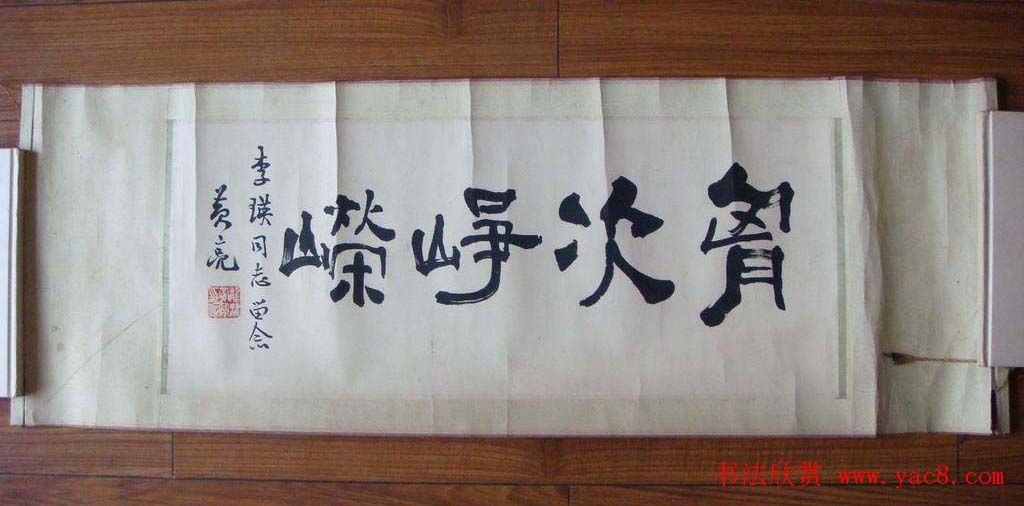 胷次崢嶸
李瑛同志留念
黄亮
书法欣赏 www.yac8.com